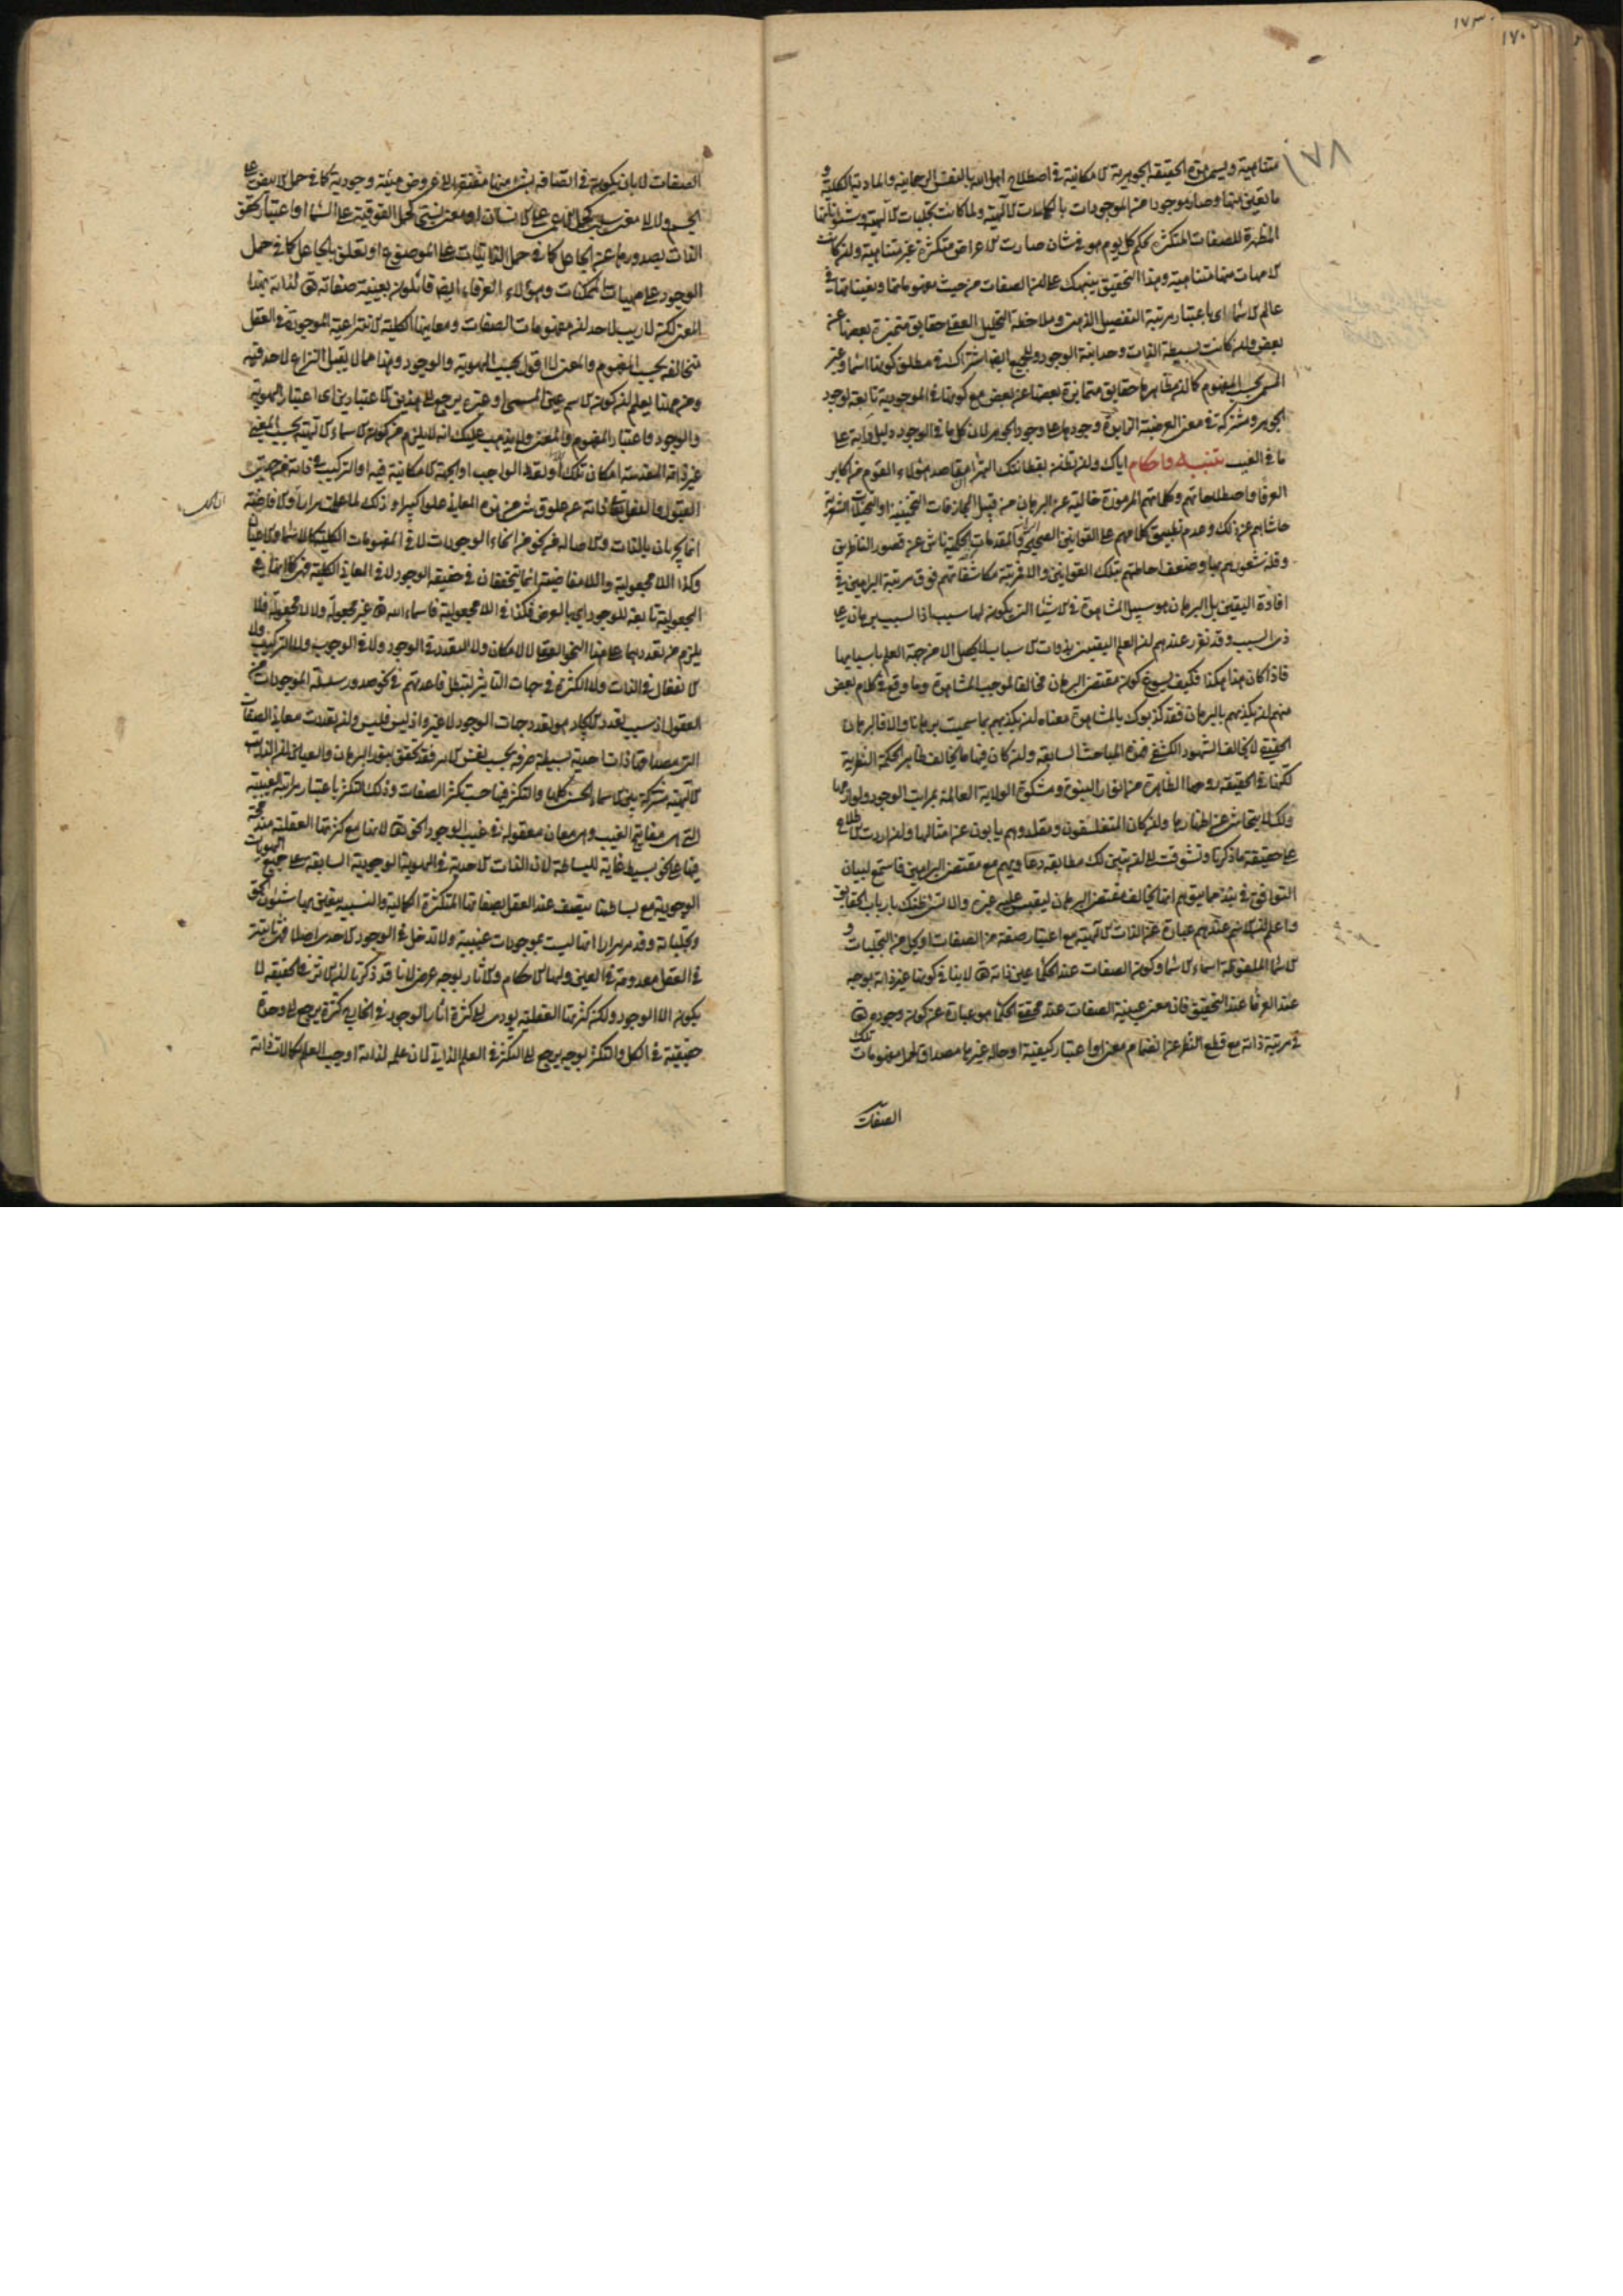 ١٧٣
١٧٠
١٧٨
متناهية ويسمى هذه الحقيقة الجوهرية الامكانية في اصطلاح اهل الله بالنفس الرحمانية والمادة الكلية و
ما تعين منها وصار موجودا من الموجودات بالكلمات الالهية ولما كانت تجليات الالهية
المظهرة للصفات المتكثرة بحكم كل يوم هو في شان صارت الاعراض متكثرة غير متناهية وان كانت
الامهات منها متناهية وهذا التحقيق ينبهك على ان الصفات من حيث مفهوماتها وتعيناتها في
عالم الاسماء اى باعتبار مرتبة التفصيل الذهني وملاحظة التحليل العقلي حقايق متميزة بعضها عن
بعض وان كانت بسيطة الذات وحدانية الوجود وللجميع ايضا اشتراك في مطلق كونها اسماء وغير
المسمى بحسب المفهوم كما ان مظاهرها حقايق متمايزة بعضها عن بعض مع كونها في الموجودية تابعة لوجود
الجوهر ومشتركة في معنى العرضية الزايدة وجودها على وجود الجواهر لان كل ما في الوجود دليل وآية على
ما في الغيب تنبيه واحكام اياك وان تظن بفطانتك البتراء ان مقاصد هؤلاء القوم من اكابر
العرفاء واصطلاحاتهم وكلماتهم المرموزة خالية عن البرهان من قبيل المجازفات التخمينية او التخيلات الشعرية
حاشاهم عن ذلك وعدم تطبيق كلامهم على القوانين الصحيحة البرهانية والمقدمات الحكمية ناش عن قصور الناظرين
وقلة شعورهم بها وضعف احاطتهم بتلك القوانين والا فمرتبة مكاشفاتهم فوق مرتبة البراهين في
افادة اليقين بل البرهان هو سبيل المشاهدة في الاشياء التي يكون لها سبب اذ السبب برهان على
ذى السبب وقد تقرر عندهم ان العلم اليقيني بذوات الاسباب لا يحصل الا من جهة العلم باسبابها
فاذا كان هذا هكذا فكيف يسوغ كون مقتضى البرهان مخالفا لموجب المشاهدة وما وقع في كلام بعض
منهم ان تكذبهم بالبرهان فقد كذبوك بالمشاهدة معناه ان تكذبهم بما سميت برهانا والا فالبرهان
الحقيقي لا يخالف الشهود الكشفي فهذه المباحث السابقة وان كان فيها ما يخالف ظاهر الحكمة النظرية
لكنها في الحقيقة روحها الظاهرة من انوار النبوة ومشكوة الولاية العالمة بمراتب الوجود ولوازمها
ولذلك لا يتحاشى عن اظهارها وان كان المتفلسفون ومقلدوهم يابون عن امثالها وان اردت الاطلاع
على حقيقة ما ذكرنا وتشوقت الى ان يتبين لك مطابقة دعاويهم مع مقتضى البراهين فاستمع لبيان
التوافق في نبذ مما يتوهم انها يخالف مقتضى البرهان ليقيس عليه غيره ولا تسئ ظنك بارباب الحقايق
واعلم ان الاسم عندهم عبارة عن الذات الالهية مع اعتبار صفة من الصفات او تجل من التجليات و
الاسماء الملفوظة اسماء الاسماء وكون الصفات عند الحكماء عين ذاته تعالى لا ينافي كونها غير ذاته بوجه
عند العرفاء عند التحقيق فان معنى عينية الصفات عند محققي الحكماء هو عبارة عن كون وجوده تعالى
في مرتبة ذاته مع قطع النظر عن انضمام معنى او اعتبار كيفية او حالة غيرها مصداق لحمل مفهومات تلك
الصفات
الصفات لا بان يكون في اتصافه بشئ منها مفتقرا الى عروض هيئة وجودية كما في حمل الابيض على
الجسم ولا الى معنى سلبي كحمل الاعمى على الانسان او معنى نسبي كحمل الفوقية على السماء او اعتبار تحقق
الذات بصدورها عن الجاعل كما في حمل الذاتيات على الموضوع او تعلق بالجاعل كما في حمل
الوجود على مهيات الممكنات وهؤلاء العرفاء ايضا قائلون بعينية صفاته تعالى لذاته بهذا
المعنى لكنه لا ريب لاحد ان مفهومات الصفات ومعانيها الكلية الانتزاعية الموجودة في العقل
متخالفة بحسب المفهوم والمعنى لا اقول بحسب الهوية والوجود وهذا مما لا يقبل النزاع لاحد فيه
ومن ههنا يعلم ان كون الاسم عين المسمى او غيره يرجع الى هذين الاعتبارين اى اعتبار الهوية
والوجود واعتبار المفهوم والمعنى ولا يذهب عليك انه لا يلزم من كون الاسماء الالهية بحسب المعنى
غير ذاته المقدسة امكان تلك او تعدد الواجب او الجهة الامكانية فيه او التركيب في ذاته من جهتي
القبول والفعل تعالى ذاته عن علوق شئ من هذه المعاني علوا كبيرا وذلك لما علمت مرارا ان الافاضة
انما يجريان بالذات والاصالة في نحو من انحاء الوجودات لا في المفهومات الكلية كالاسماء والاعيان
وكذا اللا مجعولية واللا مفاضية انما يتحققان في حقيقة الوجود لا في المعاني الكلية
المجعولية تابعة للوجود اى بالعرض فكذا في اللا مجعولية فاسماء الله تعالى غير مجعولة ولا لا مجعولة فلا
يلزم من تعددها على هذا النحو العقلي لا الامكان ولا التعدد في الوجود ولا في الوجوب ولا التركيب ولا
الانفعال في الذات ولا الكثرة في جهات التاثير لتبطل قاعدتهم في نحو صدور سلسلة الموجودات من
العقول اذ سبب تعدد الايجاد هو تعدد جهات الوجود لا غير واذ ليس فليس وان تعددت معاني الصفات
التي مصداقها ذات احدية بسيطة صرفة بحسب نفس الامر فقد تحقق بنور البرهان والعيان ان الذات
الالهية مشتركة بين الاسماء الحسنى كلها والتكثر فيها حسب تكثر الصفات وذلك التكثر باعتبار مراتبه الغيبية
التي هى مفاتيح الغيب وهى معان معقولة في غيب الوجود الحق تعالى لا انها مع كثرتها العقلية مندمجة
فيها على نحو بسيط غاية البساطة لان الذات الاحدية في الهوية الوجودية السابقة على جميع الهويات
الوجودية مع بساطتها يتصف عند العقل بصفاتها المتكثرة الكمالية والنسبية يتعين بها شئون الحق
وتجلياته وقد مر مرارا انها ليست بموجودات عينية ولا تدخل في الوجود الاحدى اصلا فهى ثابتة
في العقل معدومة في العين ولها الاحكام والآثار بوجه عرضى لانا قد ذكرنا ان الاثر في الحقيقة لا
يكون الا الوجود ولكن كثرتها العقلية يؤدى الى كثرة آثار الوجود في الخارج كثرة يرجع الى وحدة
حقيقية في الكل والتكثر بوجه يرجع الى التكثر في العلم الذاتي لان علمه لذاته اوجب العلم بكمالات ذاته